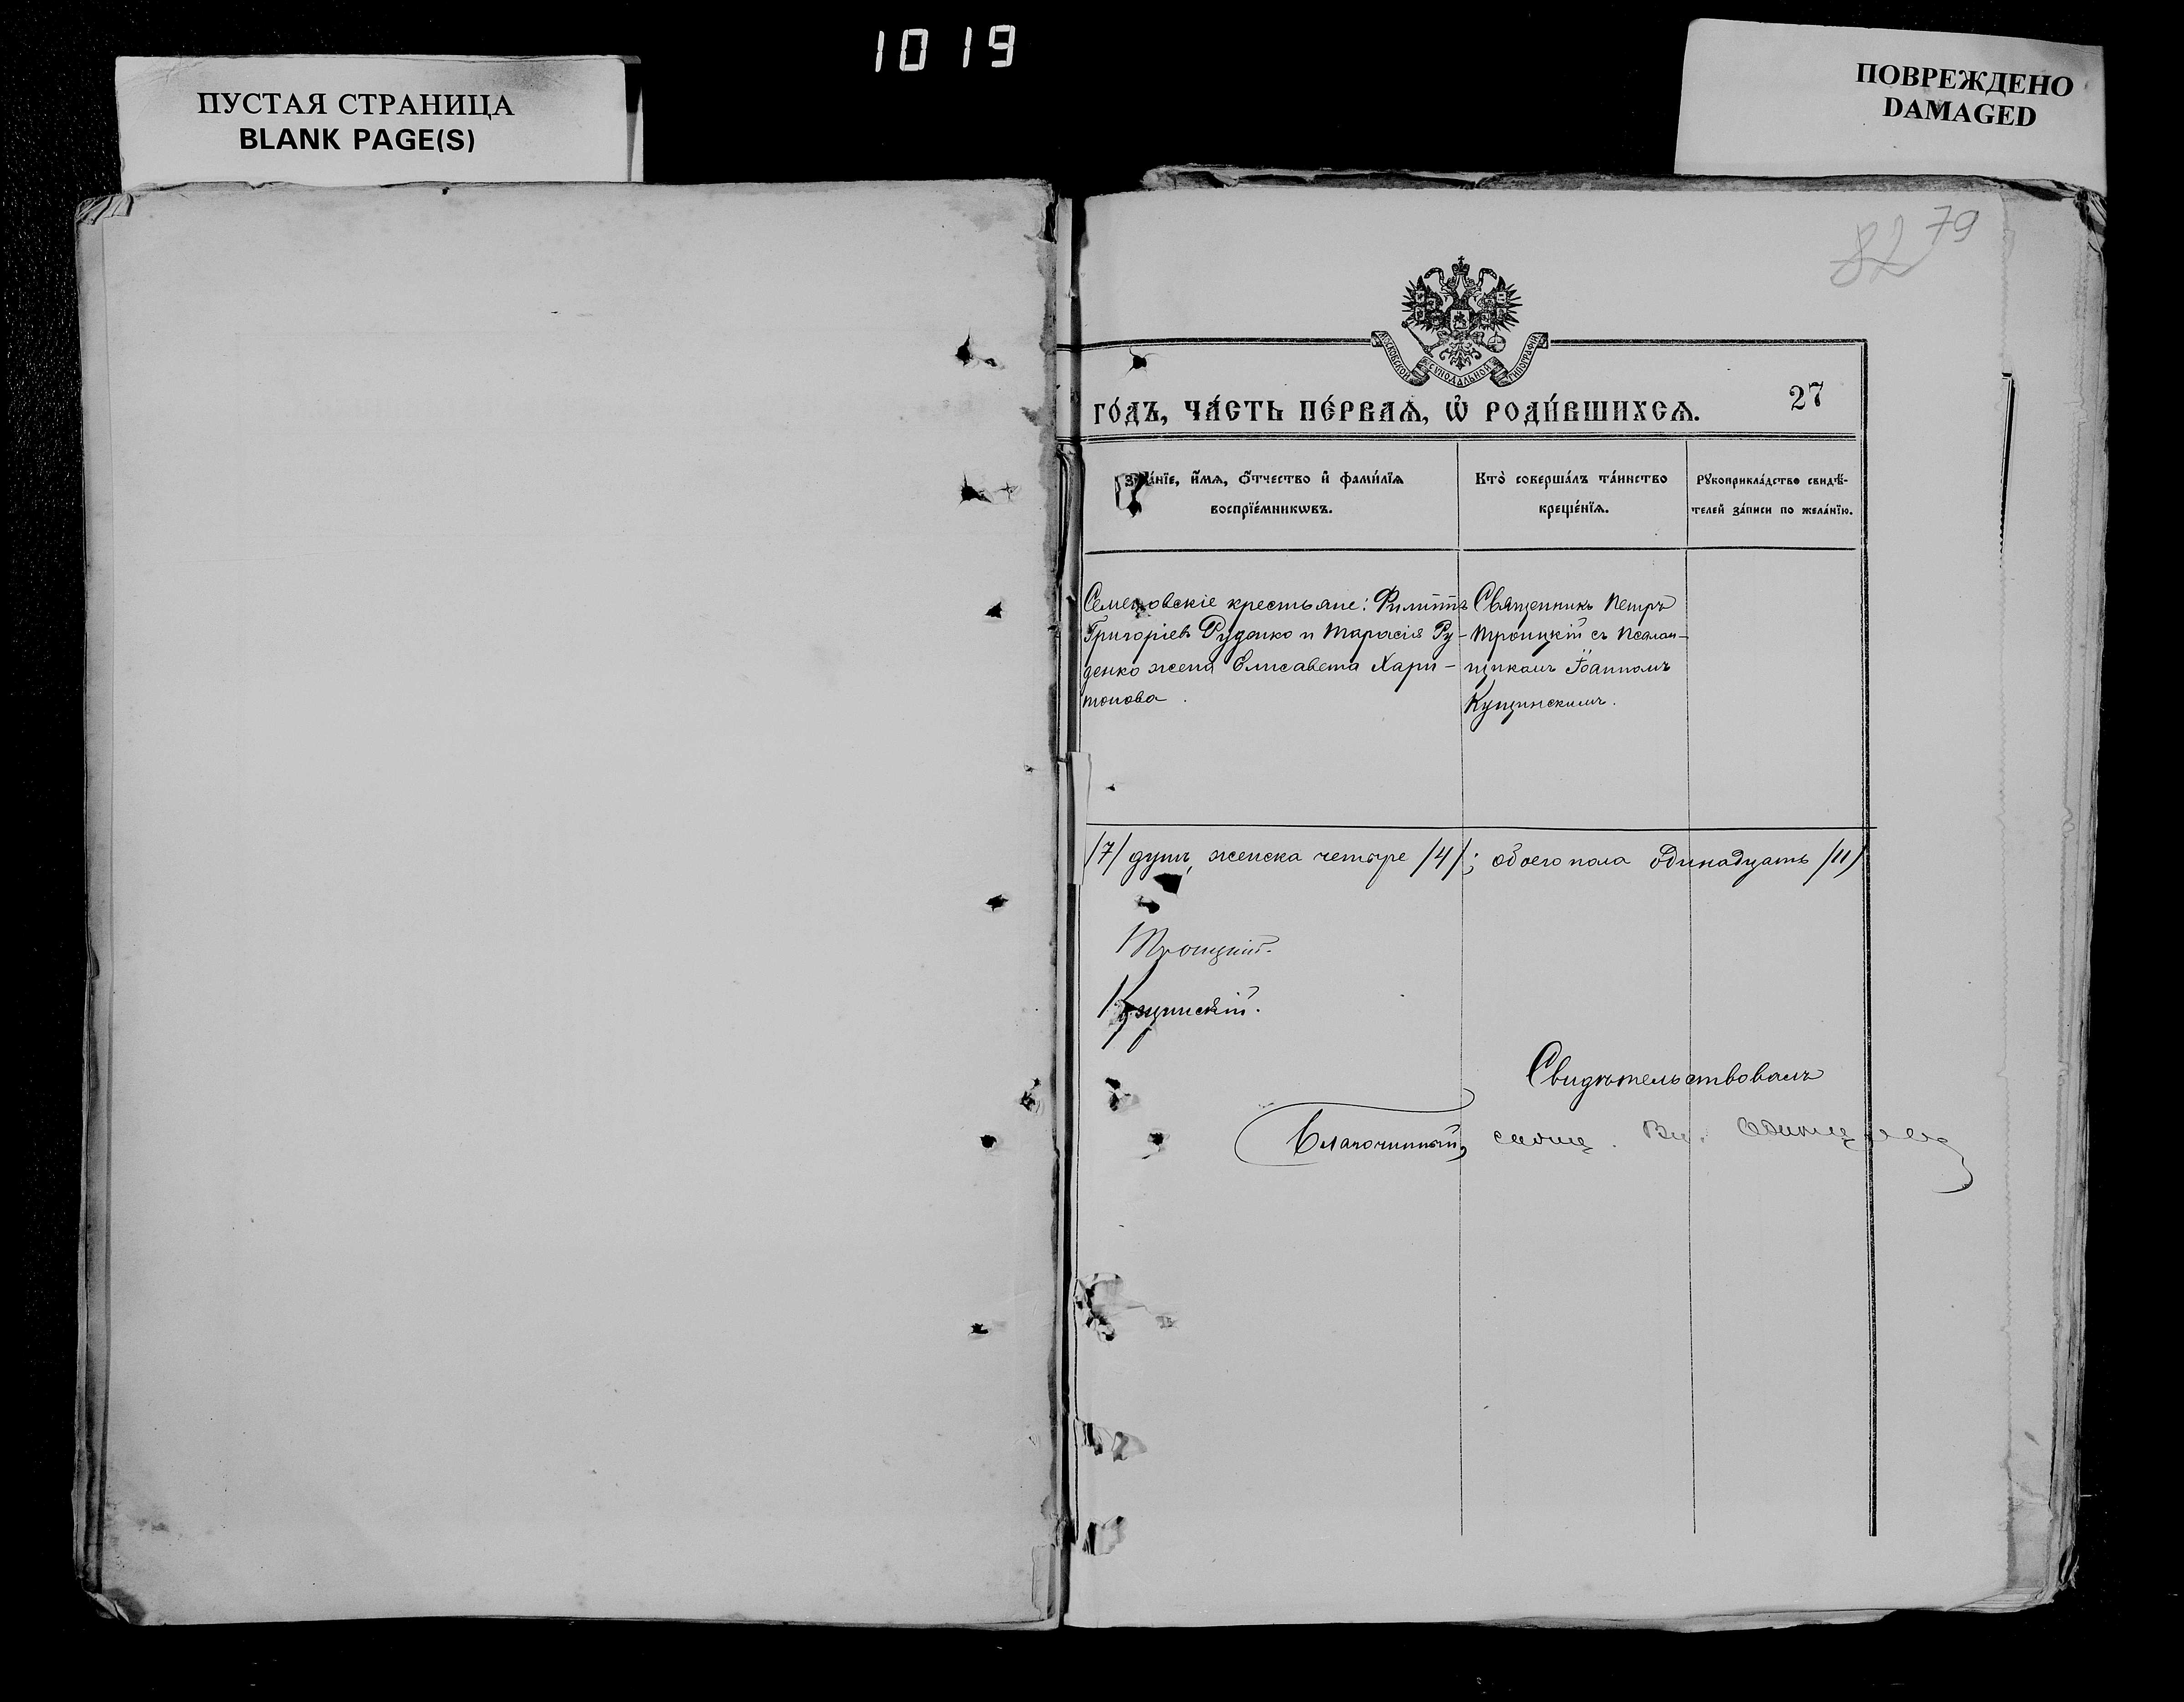 1019
ПУСТАЯ СТРАНИЦА
BLANK PAGE(S)
ПОВРЕЖДЕНО
DAMAGED
82 79
МОСКОВСКОЙ СѴНОДАЛЬНОЙ ТИПОГРАФІИ
27
го́дъ, ча́сть пе́рваѧ, ѡ҆ роди́вшихсѧ.
Зва́нїе, и҆́мѧ, ѻ҆́тчество и҆ фами́лїѧ
воспрїе́мникѡвъ.
Кто̀ соверша́лъ та́инство
креще́нїѧ.
Рꙋкоприкла́дство свидѣ́-
телей за́писи по жела́нїю.
Семеновскіе крестьяне: Филиппъ
Григоріевъ Руденко и Тарасія Ру-
денко жена Елисавета Хари-
тонова.
Священникъ Петръ
Троицкій съ Псалом-
щикомъ Іоанномъ
Кущинскимъ.
/7/ душъ, женска четыре /4/; обоего пола одинадцать /11/
Троицкій.
Кущинскій.
Свидѣтельствовалъ
Благочинный, свящ.